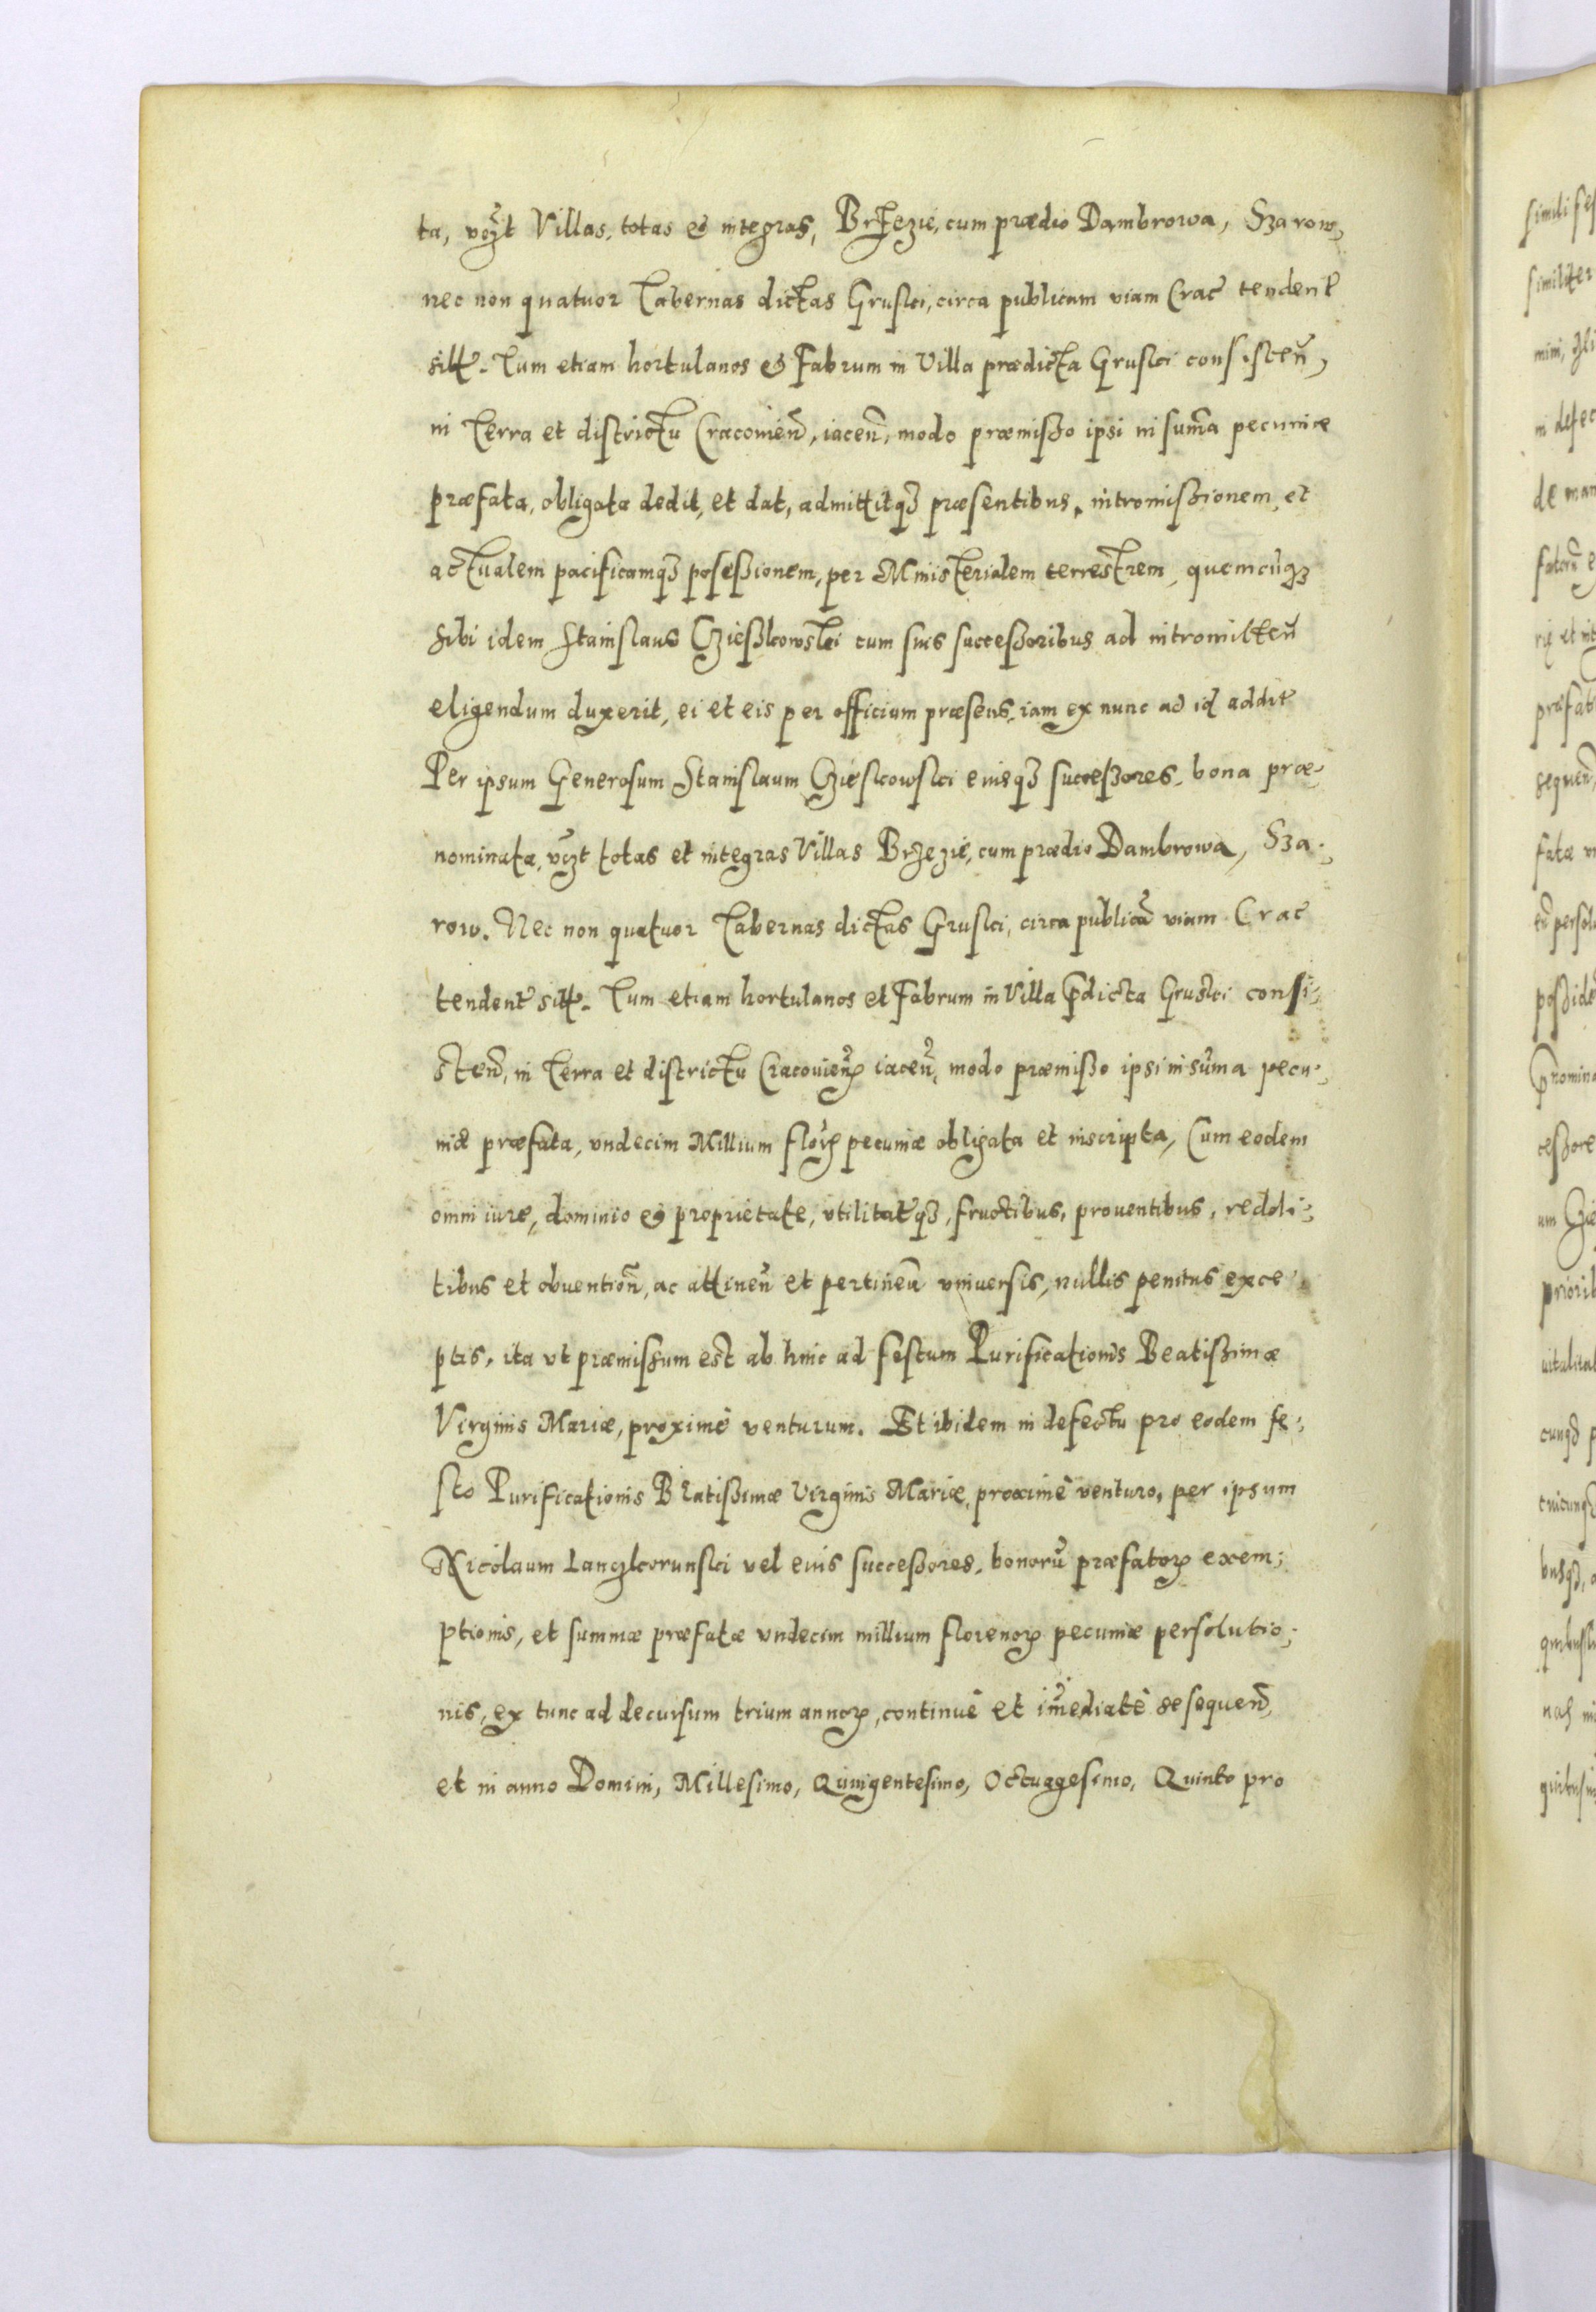 ta, vĉzt Villas, totas & integras, Brzezie, cum prædio Dambrowa, Szarow,
nec non quatuor Tabernas dictas Gruski, circa publicam viam Crac̃ tendent̃
sitt̃. Tum etiam hortulanos & Fabrum in Villa prædicta Gruski consisteñ,
in Terra et districtu Cracovieñ, iaceñ, modo præmisso ipsi in sum̃a pecuniæ
præfata, obligata dedit, et dat, admittitq₃ præsentibus, intromissionem, et
actualem pacificamq₃ posessionem, per Ministerialem terrestrem, quemcũq₃
sibi idem Stanislaus Czieszkowski cum suis successoribus ad intromitteñ
eligendum duxerit, ei et eis per officium præsens, iam ex nunc ad id addit̃
Per ipsum Generosum Stanislaum Czieskowski eiusq₃ successores, bona præ-
nominata, vĉzt totas et integras Villas Brzezie, cum prædio Dambrowa, Sza-
row. Nec non quatuor Tabernas dictas Gruski, circa publicã viam Crac̃
tendent̃ sitt̃. Tum etiam hortulanos et Fabrum in Villa p̃dicta Gruski consi-
steñ, in Terra et districtu Cracovieñ iaceñ, modo præmisso ipsi in sum̃a pecu-
niæ præfata, vndecim Millium floꝝ pecuniæ obligata et inscripta, Cum eodem
omni iure, dominio & proprietate, vtilitatq₃, fructibus, prouentibus, reddi-
tibus et obventioñ, ac attineñ et pertineñ vniuersis, nullis penitus exce-
ptis, ita vt præmissum est ab hinc ad festum Purificationis Beatissimæ
Virginis Mariæ, proximè venturum. Et ibidem in defectu pro eodem fe-
sto Purificationis Beatissimæ Virginis Mariæ, proximè venturo, per ipsum
Nicolaum Langkorunski vel eius successores, bonorũ præfatoꝝ exem-
ptionis, et summæ præfatæ vndecim millium florenoꝝ pecuniæ persolutio-
nis, ex tunc ad decursum trium annoꝝ, continuè et im̃ediatè sesequeñ,
et in anno Domini, Millesimo, Quingentesimo, Octuagesimo, Quinto pro